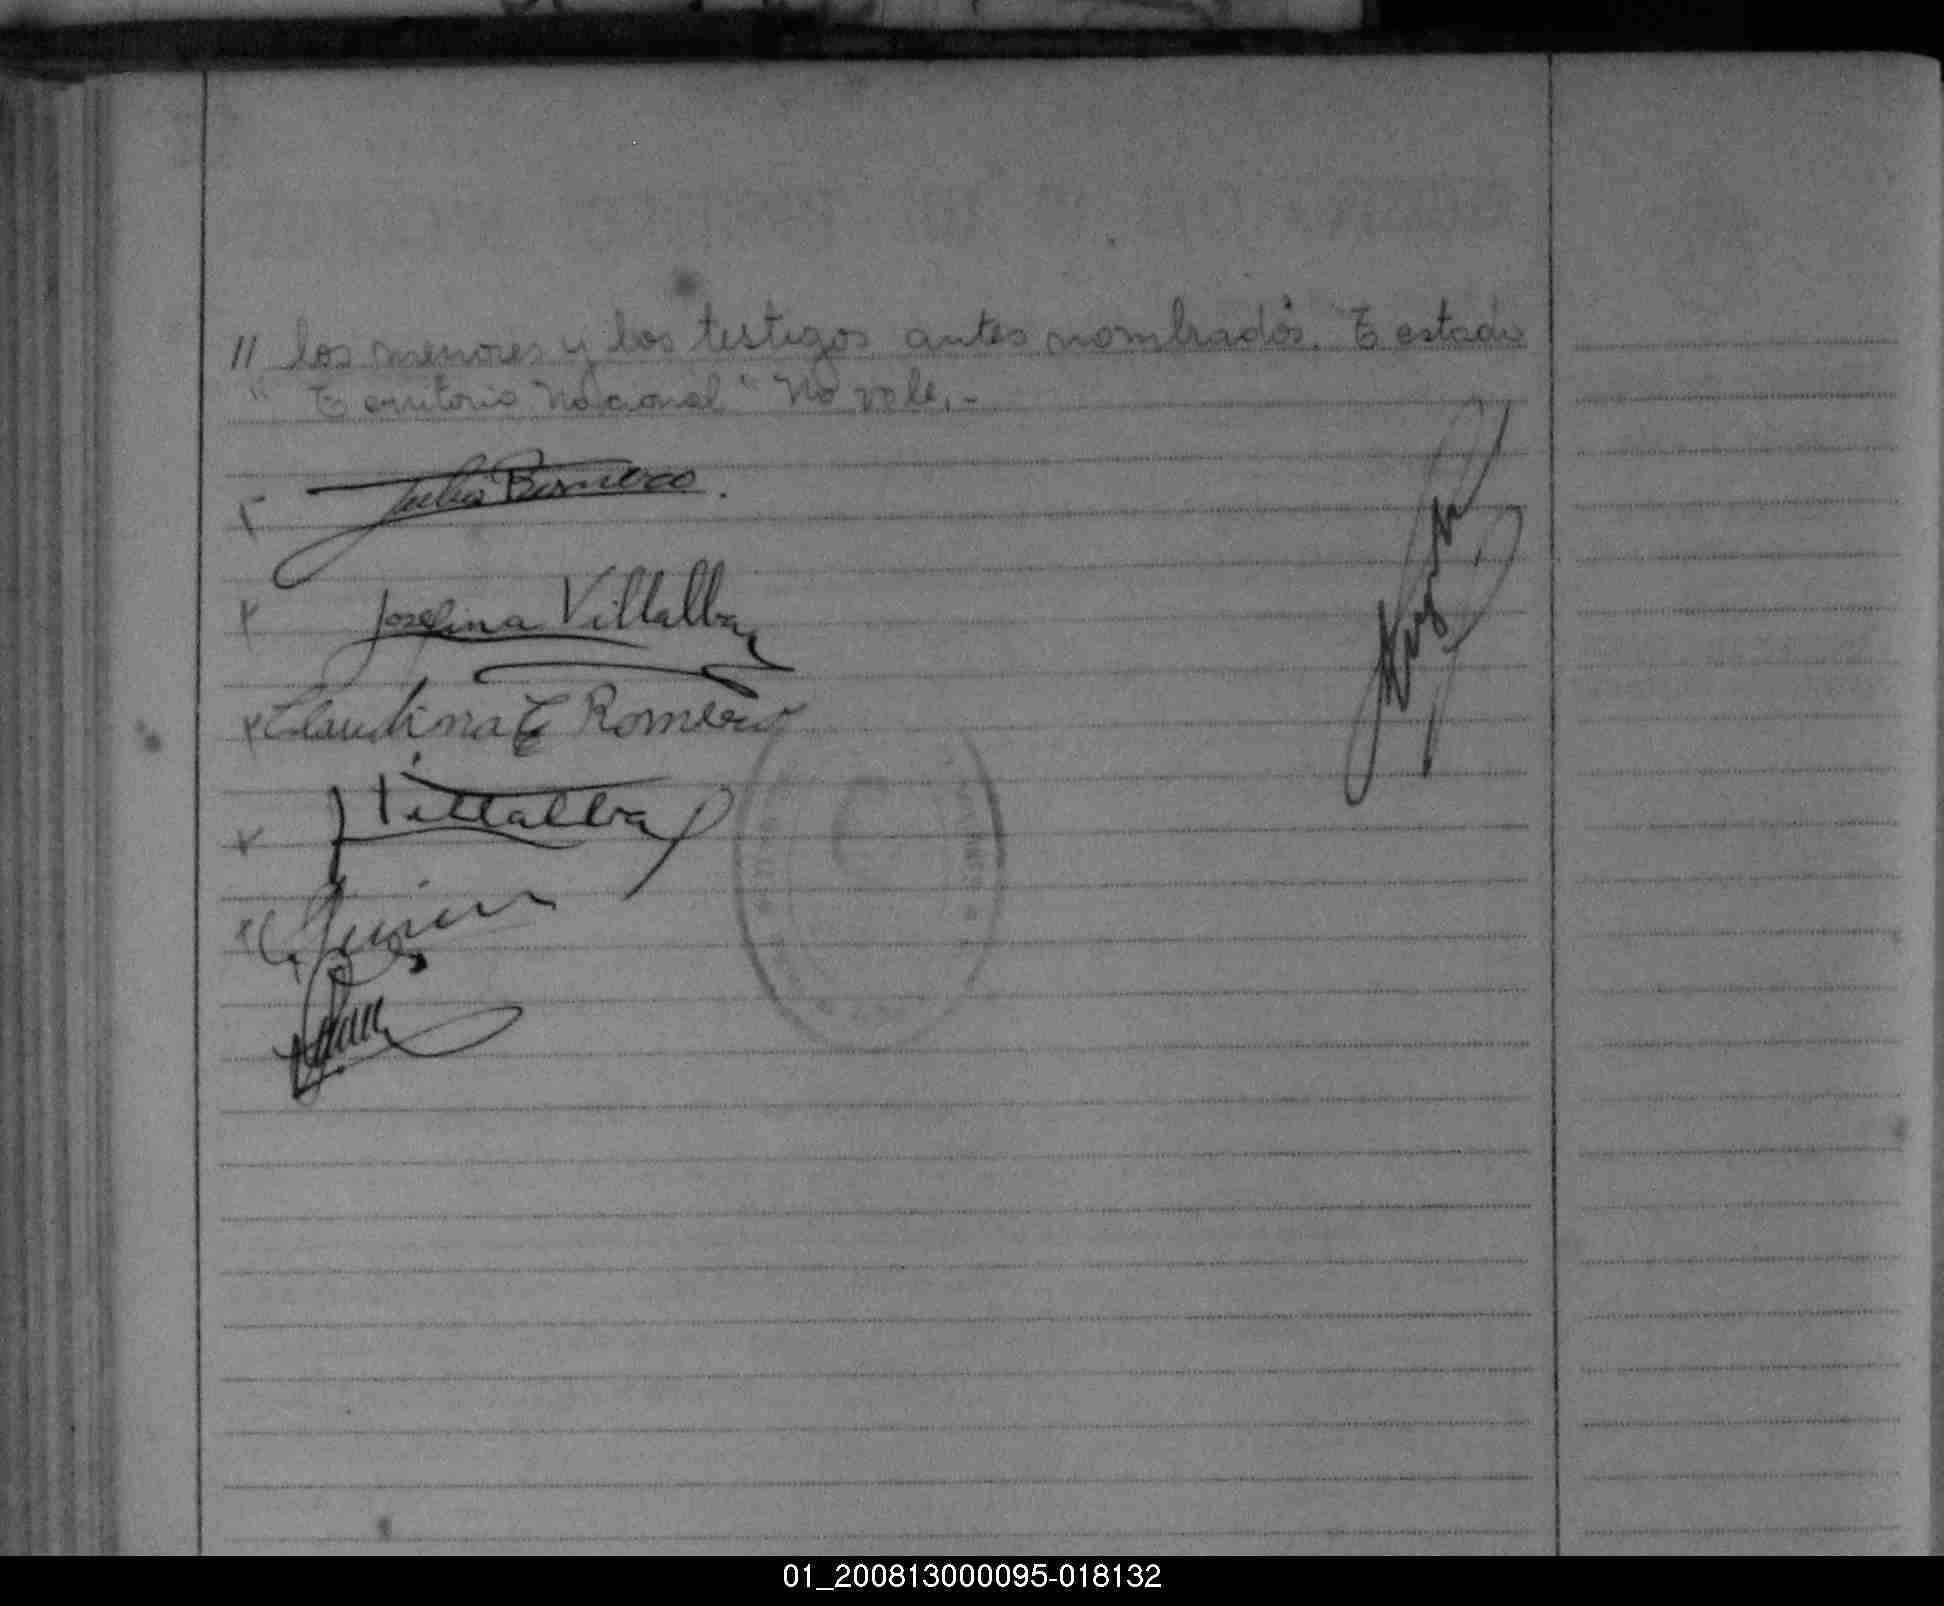 11 los menores y los testigos antes nombrados. Testado
" Territorio Nacional " No vale.-
Julio Romero.
Josefina Villalba
Claudina E Romero
Villalba
01_200813000095-018132